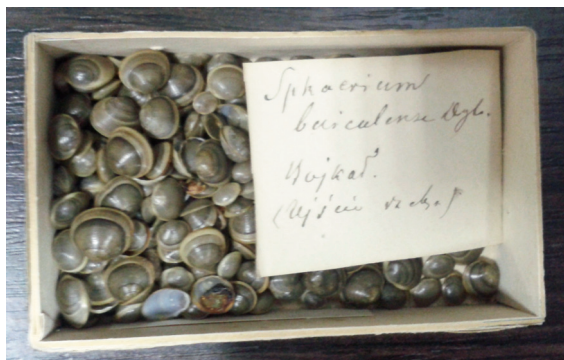 Sphaerium
baicalense Dyb.
Bajkał.
(Ujście